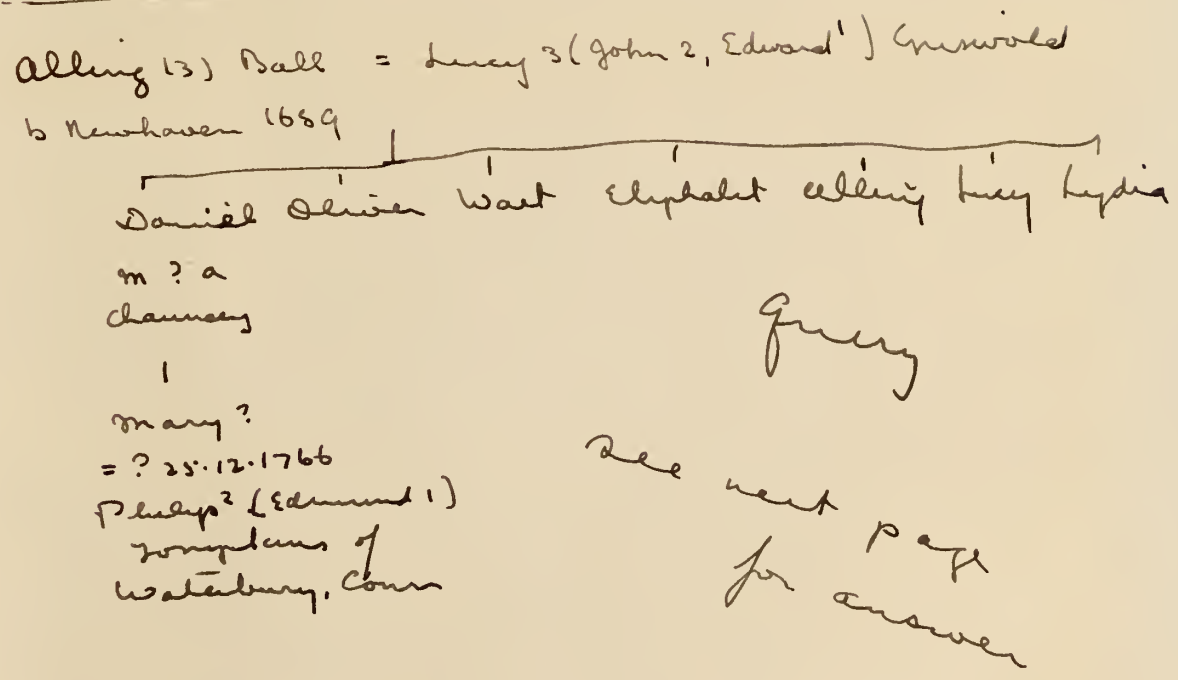 Alling (3) Ball = Lucy 3 (John 2, Edward 1) Griswold
b Newhaven 1689
Daniel Oliver Wait Eliphalet Alling Lucy Lydia
m ? a
Chauncey
Mary ?
= ? 25.12.1766
Philip 2 (Edmund 1)
Tompkins of
Waterbury, Conn
Query
See next page
for answer